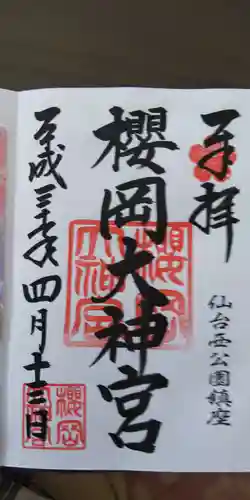 奉拝
仙台西公園鎮座
櫻岡大神宮
櫻岡大神宮
平成三十年四月十三日
櫻岡